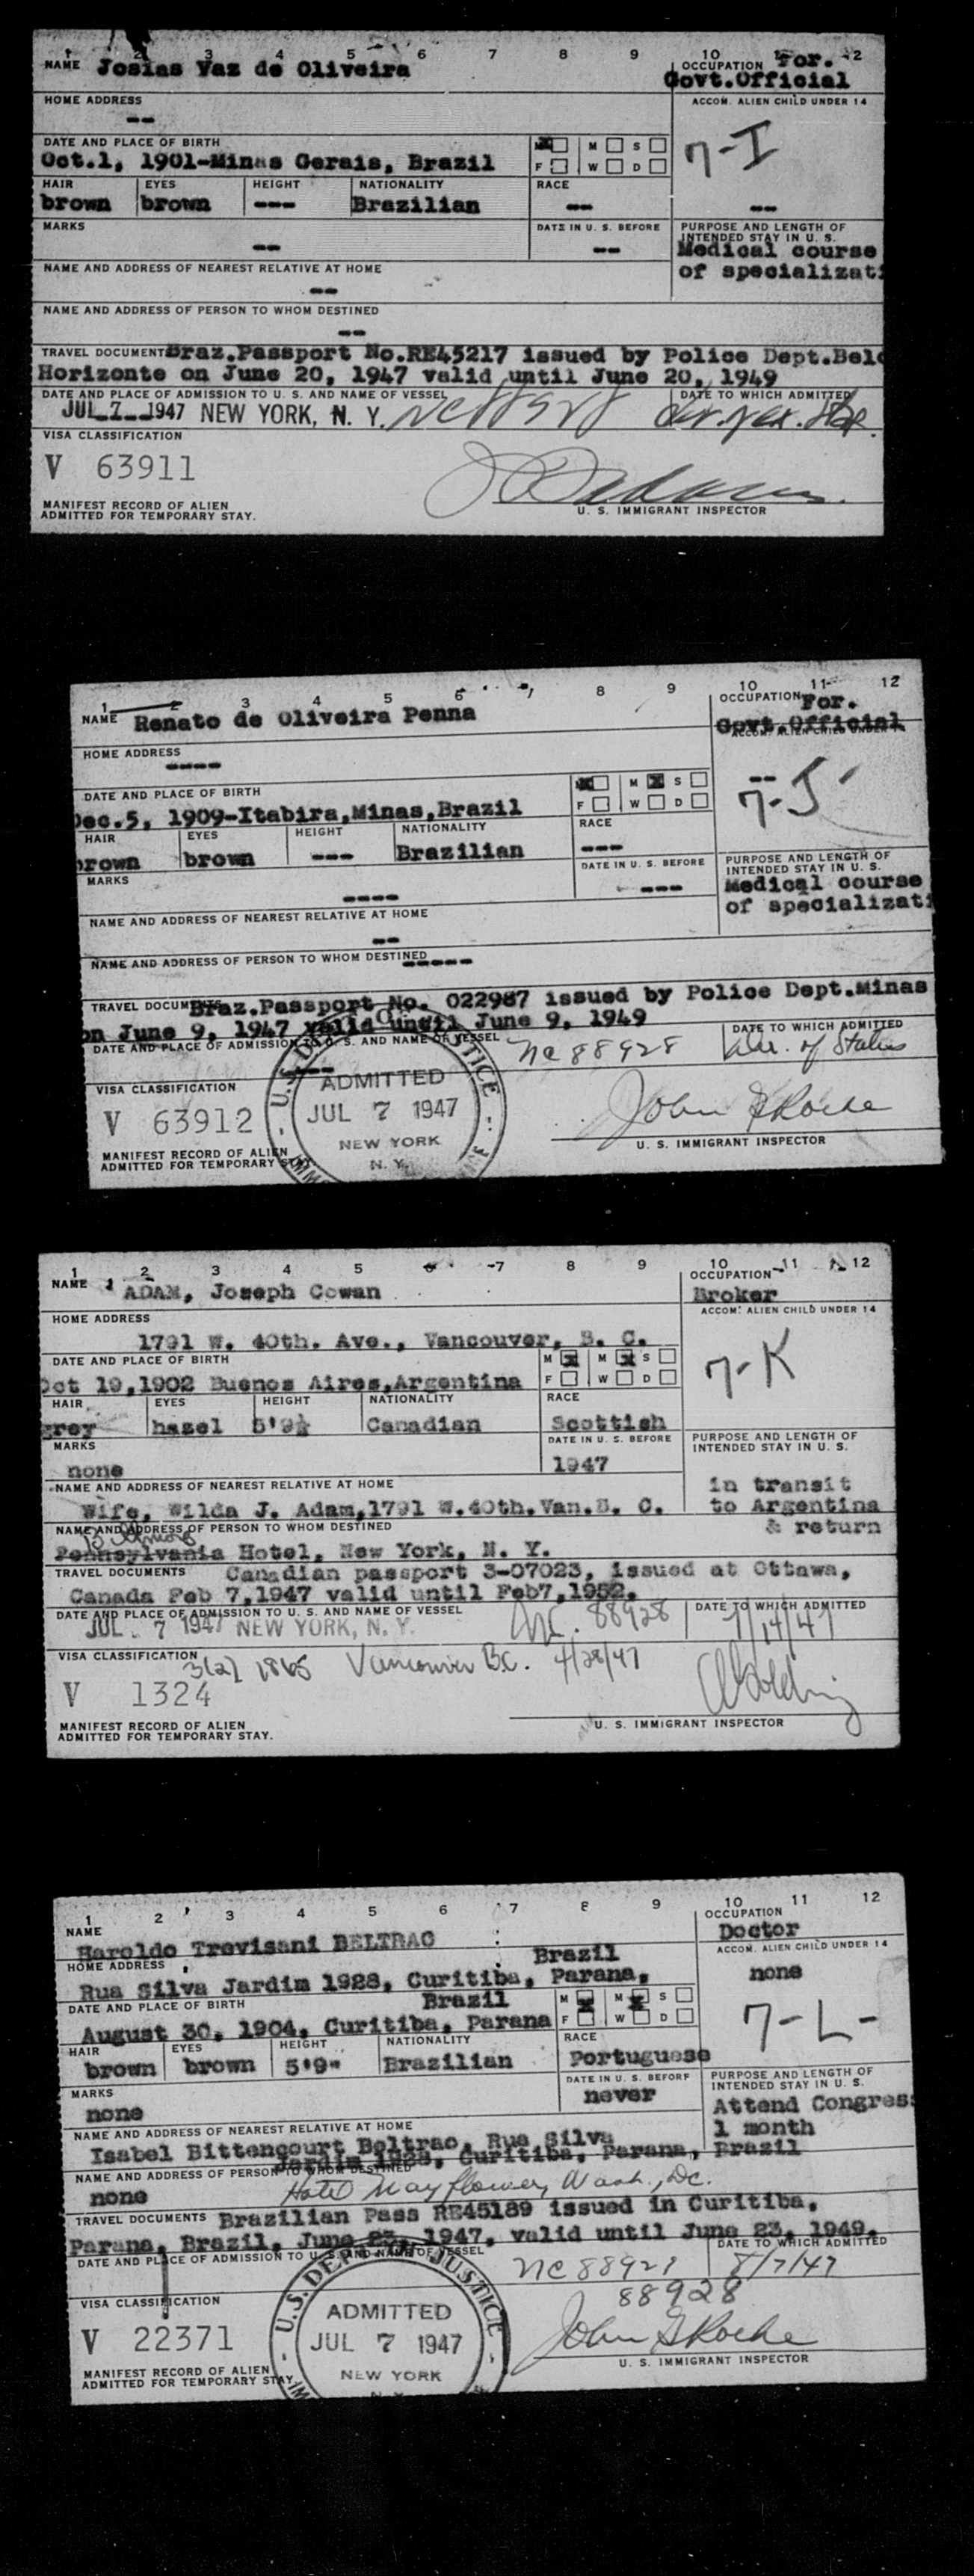 1 2 3 4 5 6 7 8 9 10 12
NAME Josias Vaz de Oliveira
OCCUPATION For.
Govt.Official
HOME ADDRESS
--
ACCOM. ALIEN CHILD UNDER 14
7-I
--
DATE AND PLACE OF BIRTH
Oct.1, 1901-Minas Gerais, Brazil
M M S
F W D
HAIR EYES HEIGHT NATIONALITY RACE
brown brown --- Brazilian --
MARKS
--
DATE IN U. S. BEFORE
--
PURPOSE AND LENGTH OF
INTENDED STAY IN U. S.
Medical course
of specializati
NAME AND ADDRESS OF NEAREST RELATIVE AT HOME
--
NAME AND ADDRESS OF PERSON TO WHOM DESTINED
--
TRAVEL DOCUMENT Braz.Passport No.RE45217 issued by Police Dept.Belo
Horizonte on June 20, 1947 valid until June 20, 1949
DATE AND PLACE OF ADMISSION TO U. S. AND NAME OF VESSEL
DATE TO WHICH ADMITTED
JUL 7 1947 NEW YORK, N. Y.
VISA CLASSIFICATION
V 63911
MANIFEST RECORD OF ALIEN
ADMITTED FOR TEMPORARY STAY.
U. S. IMMIGRANT INSPECTOR
1 2 3 4 5 6 7 8 9 10 11 12
NAME Renato de Oliveira Penna
OCCUPATION For.
Govt.Official
ACCOM. ALIEN CHILD UNDER 14
HOME ADDRESS
----
--
7-J
DATE AND PLACE OF BIRTH
Dec.5, 1909-Itabira,Minas,Brazil
M S
F W D
HAIR EYES HEIGHT NATIONALITY RACE
brown brown --- Brazilian ---
MARKS
----
DATE IN U. S. BEFORE
---
PURPOSE AND LENGTH OF
INTENDED STAY IN U. S.
Medical course
of specializati
NAME AND ADDRESS OF NEAREST RELATIVE AT HOME
--
NAME AND ADDRESS OF PERSON TO WHOM DESTINED
-----
TRAVEL DOCUMENTS Braz.Passport No. 022987 issued by Police Dept.Minas
on June 9, 1947 valid until June 9, 1949
DATE AND PLACE OF ADMISSION TO U. S. AND NAME OF VESSEL
DATE TO WHICH ADMITTED
NC 88928 Dur. of Status
VISA CLASSIFICATION
V 63912
U.S. JUSTICE
ADMITTED
JUL 7 1947
NEW YORK
N. Y.
John G Roche
MANIFEST RECORD OF ALIEN
ADMITTED FOR TEMPORARY STAY
U. S. IMMIGRANT INSPECTOR
1 2 3 4 5 6 7 8 9 10 11 12
NAME ADAM, Joseph Cowan
OCCUPATION
Broker
HOME ADDRESS
1791 W. 40th. Ave., Vancouver, B. C.
ACCOM. ALIEN CHILD UNDER 14
7-K
DATE AND PLACE OF BIRTH
Oct 19,1902 Buenos Aires,Argentina
M M S
F W D
HAIR EYES HEIGHT NATIONALITY RACE
grey hazel 5'9½ Canadian Scottish
MARKS
none
DATE IN U. S. BEFORE
1947
PURPOSE AND LENGTH OF
INTENDED STAY IN U. S.
in transit
to Argentina
& return
NAME AND ADDRESS OF NEAREST RELATIVE AT HOME
Wife, Wilda J. Adam,1791 W.40th.Van.B. C.
NAME AND ADDRESS OF PERSON TO WHOM DESTINED
Biltmore
Pennsylvania Hotel, New York, N. Y.
TRAVEL DOCUMENTS Canadian passport 3-07023, issued at Ottawa,
Canada Feb 7,1947 valid until Feb7,1952.
DATE AND PLACE OF ADMISSION TO U. S. AND NAME OF VESSEL
DATE TO WHICH ADMITTED
JUL 7 1947 NEW YORK, N. Y. NC. 88928 7/14/47
VISA CLASSIFICATION 3(2) 1865 Vancouver B.C. 4/28/47
V 1324
MANIFEST RECORD OF ALIEN
ADMITTED FOR TEMPORARY STAY.
U. S. IMMIGRANT INSPECTOR
1 2 3 4 5 6 7 8 9 10 11 12
NAME
Haroldo Trevisani BELTRAO
OCCUPATION
Doctor
HOME ADDRESS Brazil
Rua Silva Jardim 1928, Curitiba, Parana,
ACCOM. ALIEN CHILD UNDER 14
none
7-L-
DATE AND PLACE OF BIRTH Brazil
August 30, 1904, Curitiba, Parana
M M S
F W D
HAIR EYES HEIGHT NATIONALITY RACE
brown brown 5'9" Brazilian Portuguese
MARKS
none
DATE IN U. S. BEFORE
never
PURPOSE AND LENGTH OF
INTENDED STAY IN U. S.
Attend Congress
1 month
NAME AND ADDRESS OF NEAREST RELATIVE AT HOME
Isabel Bittencourt Beltrao, Rua Silva
Jardim 1928, Curitiba, Parana, Brazil
NAME AND ADDRESS OF PERSON TO WHOM DESTINED
none Hotel Mayflower, Wash., DC.
TRAVEL DOCUMENTS Brazilian Pass RE45189 issued in Curitiba,
Parana, Brazil, June 23, 1947, valid until June 23, 1949.
DATE AND PLACE OF ADMISSION TO U. S. AND NAME OF VESSEL
DATE TO WHICH ADMITTED
NC 88921 8/7/47
88928
VISA CLASSIFICATION
V 22371
U.S. DE JUSTICE
ADMITTED
JUL 7 1947
NEW YORK
John G Roche
MANIFEST RECORD OF ALIEN
ADMITTED FOR TEMPORARY STAY.
U. S. IMMIGRANT INSPECTOR